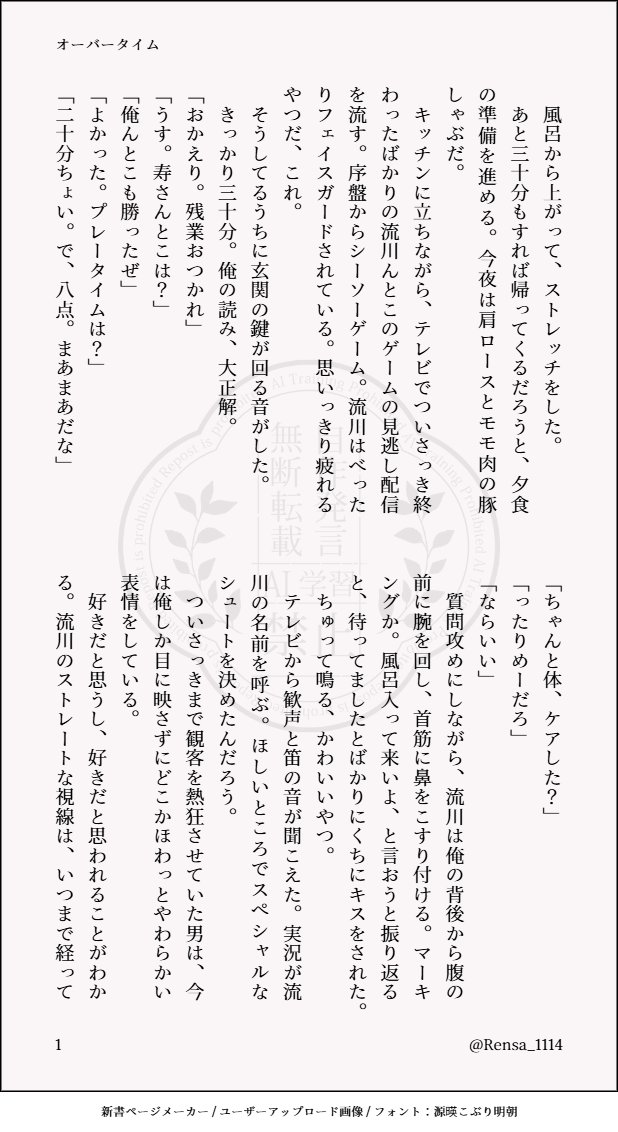 オーバータイム
　風呂から上がって、ストレッチをした。
　あと三十分もすれば帰ってくるだろうと、夕食
の準備を進める。今夜は肩ロースとモモ肉の豚
しゃぶだ。
　キッチンに立ちながら、テレビでついさっき終
わったばかりの流川んとこのゲームの見逃し配信
を流す。序盤からシーソーゲーム。流川はべった
りフェイスガードされている。思いっきり疲れる
やつだ、これ。
　そうしてるうちに玄関の鍵が回る音がした。
　きっかり三十分。俺の読み、大正解。
「おかえり。残業おつかれ」
「うす。寿さんとこは？」
「俺んとこも勝ったぜ」
「よかった。プレータイムは？」
「二十分ちょい。で、八点。まあまあだな」
「ちゃんと体、ケアした？」
「ったりめーだろ」
「ならいい」
　質問攻めにしながら、流川は俺の背後から腹の
前に腕を回し、首筋に鼻をこすり付ける。マーキ
ングか。風呂入って来いよ、と言おうと振り返る
と、待ってましたとばかりにくちにキスをされた。
　ちゅって鳴る、かわいいやつ。
　テレビから歓声と笛の音が聞こえた。実況が流
川の名前を呼ぶ。ほしいところでスペシャルな
シュートを決めたんだろう。
　ついさっきまで観客を熱狂させていた男は、今
は俺しか目に映さずにどこかほわっとやわらかい
表情をしている。
　好きだと思うし、好きだと思われることがわか
る。流川のストレートな視線は、いつまで経って
無断転載
AI学習
禁止
1
@Rensa_1114
新書ページメーカー / ユーザーアップロード画像 / フォント：源暎こぶり明朝